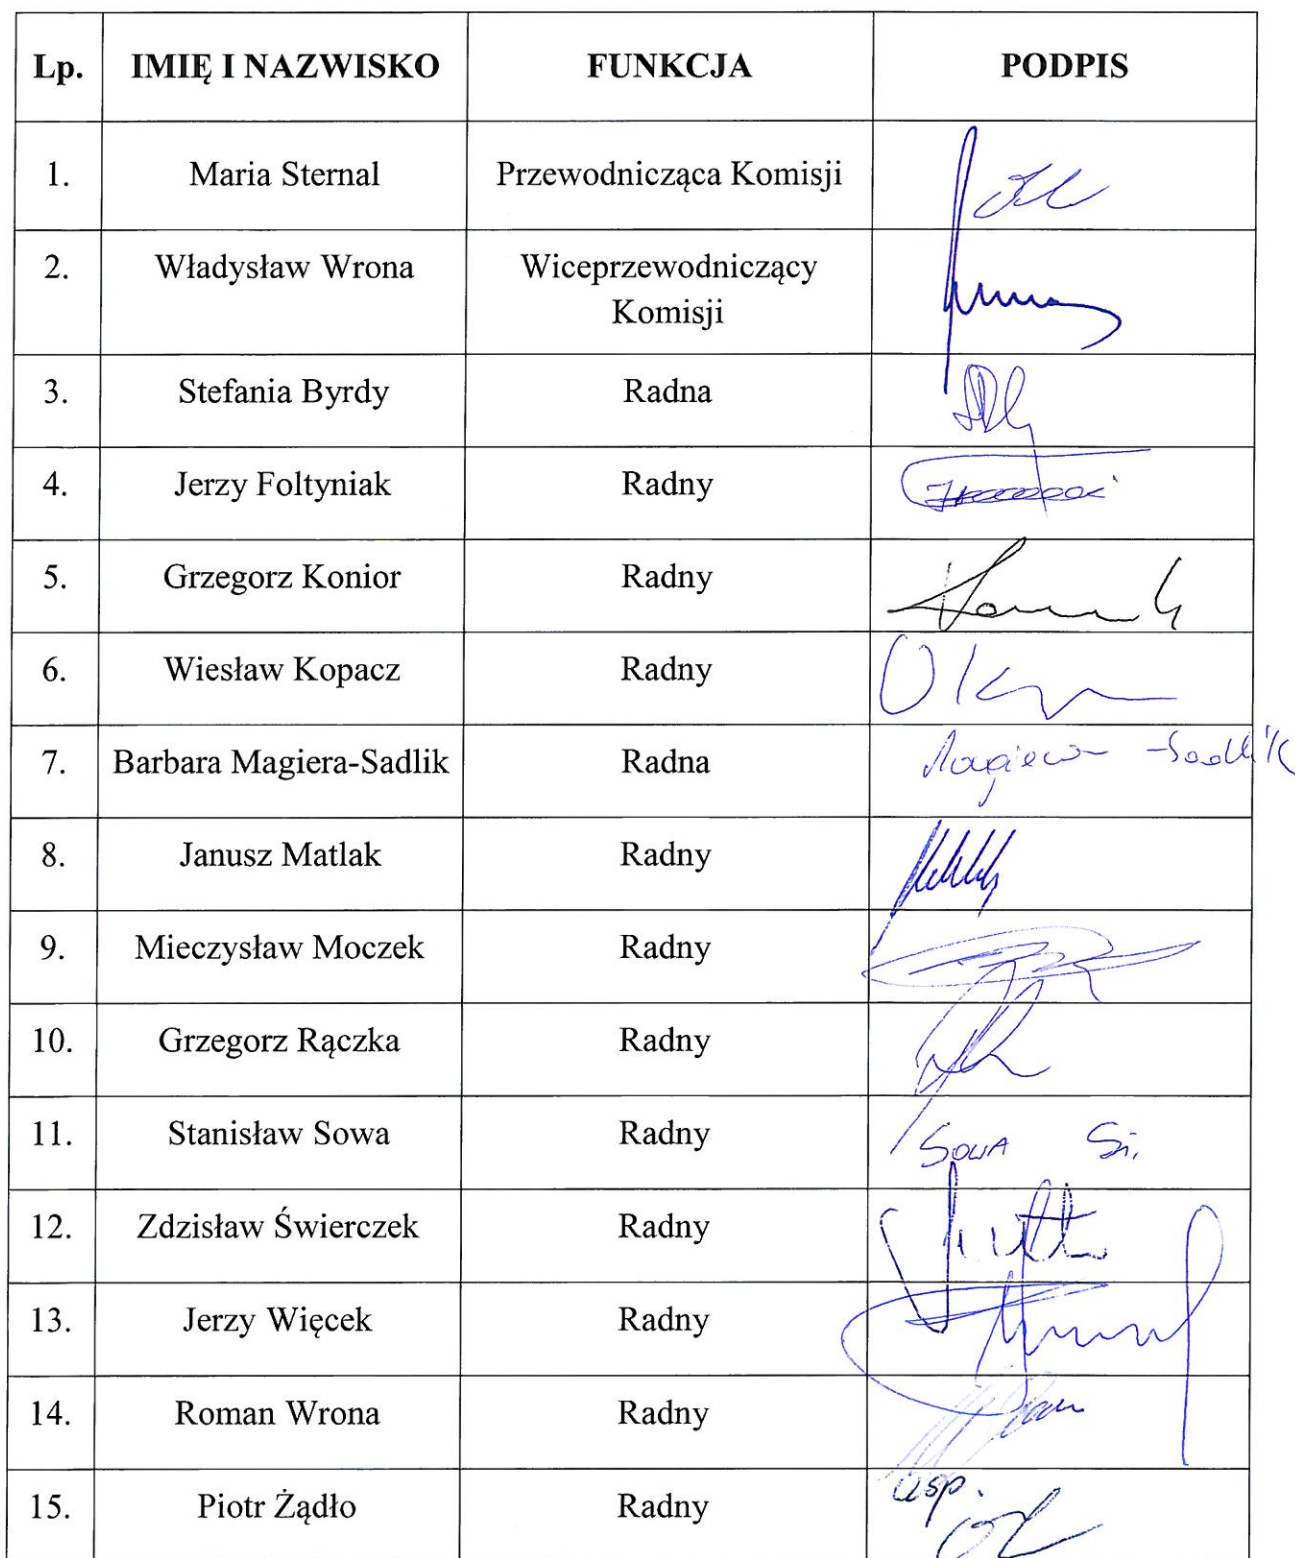 Lp. IMIĘ I NAZWISKO FUNKCJA PODPIS
1. Maria Sternal Przewodnicząca Komisji
2. Władysław Wrona Wiceprzewodniczący
Komisji
3. Stefania Byrdy Radna
4. Jerzy Foltyniak Radny
5. Grzegorz Konior Radny
6. Wiesław Kopacz Radny
7. Barbara Magiera-Sadlik Radna Magiera-Sadlik
8. Janusz Matlak Radny
9. Mieczysław Moczek Radny
10. Grzegorz Rączka Radny
11. Stanisław Sowa Radny SOWA St.
12. Zdzisław Świerczek Radny
13. Jerzy Więcek Radny
14. Roman Wrona Radny
15. Piotr Żądło Radny usp.